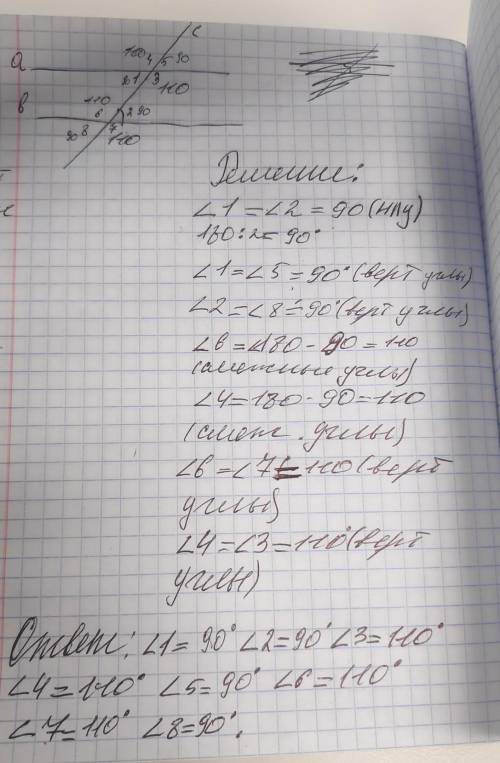 c
a 110 4 5 90
90 1 3 110
в 110 6 2 90
90 8 7 110
Решение:
∠1=∠2=90(НЛУ)
180:2=90°
∠1=∠5=90°(верт углы)
∠2=∠8=90°(верт углы)
∠6=∠180-90=110
(смежные углы)
∠4=180-90=110
(смеж. углы)
∠6=∠7=110(верт
углы)
∠4=∠3=110°(верт
углы)
Ответ: ∠1=90° ∠2=90° ∠3=110°
∠4=110° ∠5=90° ∠6=110°
∠7=110° ∠8=90°.